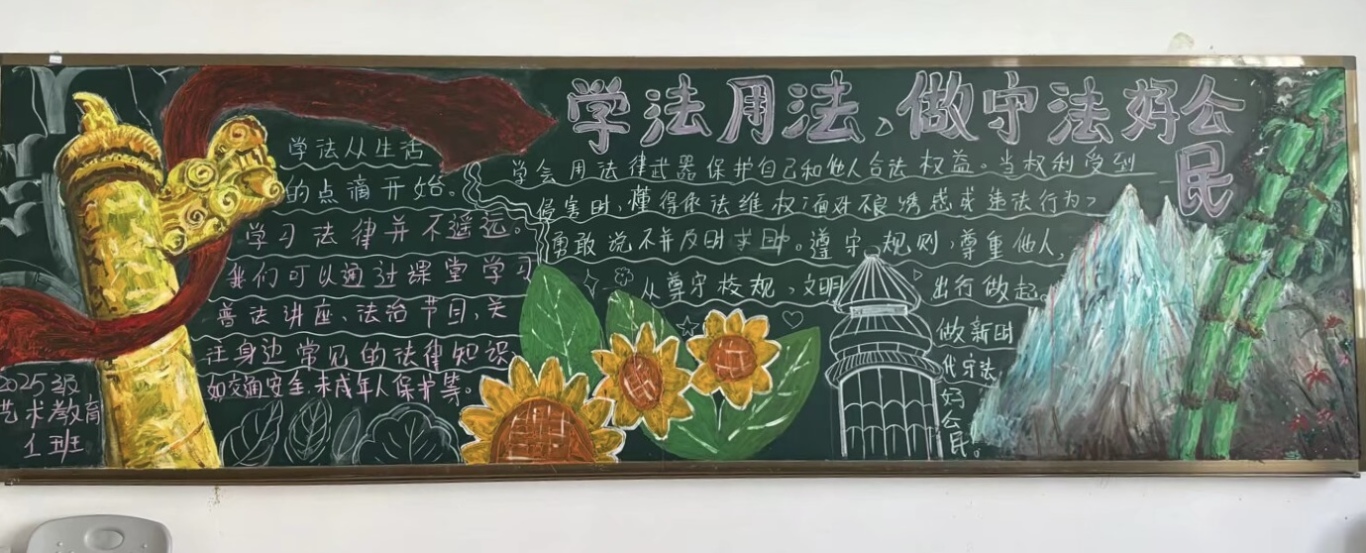 学法用法、做守法好公民
学法从生活
的点滴开始。
学习法律并不遥远。
我们可以通过课堂学习
普法讲座、法治节目,关
注身边常见的法律知识
如交通安全、未成年人保护等。
学会用法律武器保护自己和他人合法权益。当权利受到
侵害时,懂得依法维权;面对不良诱惑或违法行为,
勇敢说不并及时求助。遵守规则,尊重他人,
从遵守校规、文明出行做起。
做新时
代守法
好公民。
2025级
艺术教育
1班